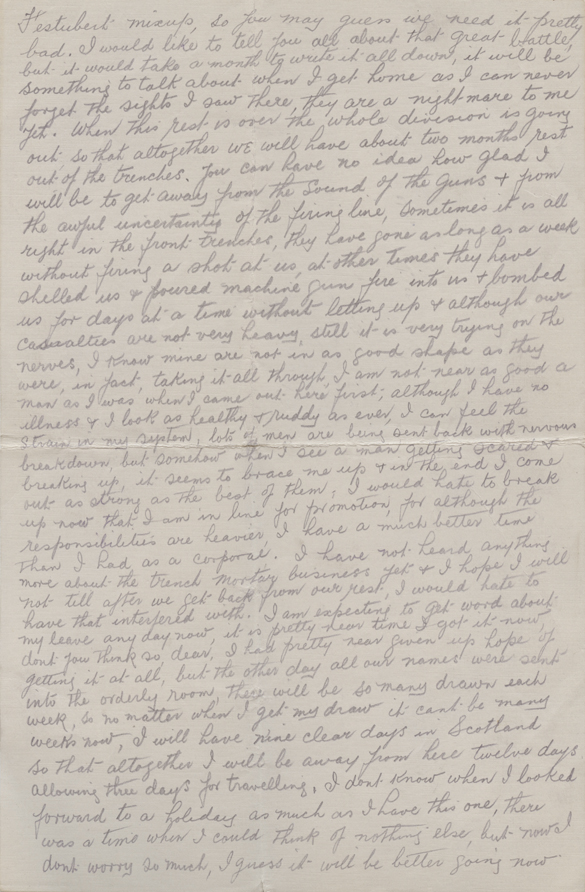 Festubert mixup, so you may guess we need it pretty
bad. I would like to tell you all about that great battle,
but it would take a month to write it all down, it will be
something to talk about when I get home as I can never
forget the sights I saw there, they are a nightmare to me
yet. When this rest is over the whole division is going
out, so that altogether we will have about two months rest
out of the trenches. You can have no idea how glad I
will be to get away from the sound of the guns & from
the awful uncertainty of the firing line, sometimes it is all
right in the front trenches, they have gone as long as a week
without firing a shot at us, at other times they have
shelled us & poured machine gun fire into us & bombed
us for days at a time without letting up & although our
casualties are not very heavy, still it is very trying on the
nerves, I know mine are not in as good shape as they
were, in fact, taking it all through, I am not near as good a
man as I was when I came out here first; although I have no
illness & I look as healthy & ruddy as ever, I can feel the
strain in my system, lots of men are being sent back with nervous
breakdown, but somehow when I see a man getting scared &
breaking up, it seems to brace me up & in the end I come
out as strong as the best of them; I would hate to break
up now that I am in line for promotion, for although the
responsibilities are heavier, I have a much better time
than I had as a corporal. I have not heard anything
more about the trench mortar business yet & I hope I will
not till after we get back from our rest, I would hate to
have that interfered with. I am expecting to get word about
my leave any day now, it is pretty near time I got it now,
dont you think so, dear, I had pretty near given up hope of
getting it at all, but the other day all our names were sent
into the orderly room, there will be so many drawn each
week, so no matter when I get my draw it cant be many
weeks now, I will have nine clear days in Scotland
so that altogether I will be away from here twelve days
allowing three days for travelling, I dont know when I looked
forward to a holiday as much as I have this one, there
was a time when I could think of nothing else, but now I
dont worry so much, I guess it will be better going now